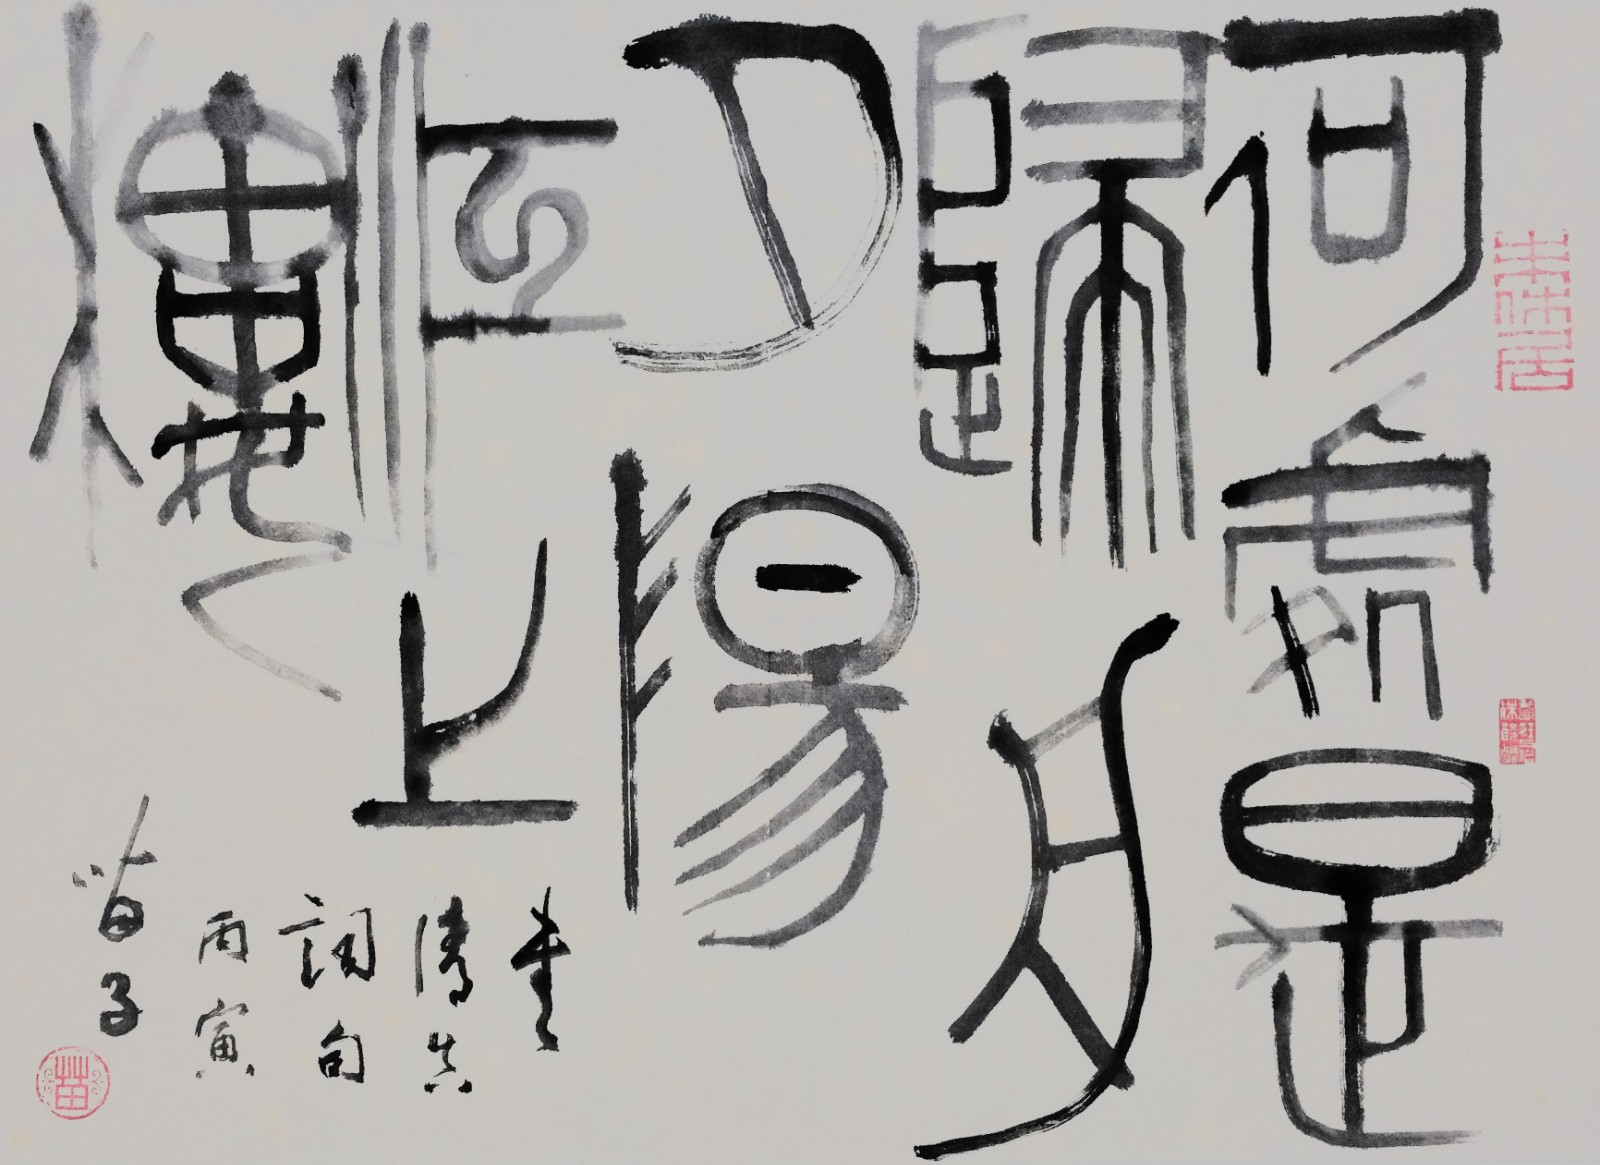 何處是
歸舟
夕陽
江上
樓
書
清真
詞句
丙寅
苗子
苗